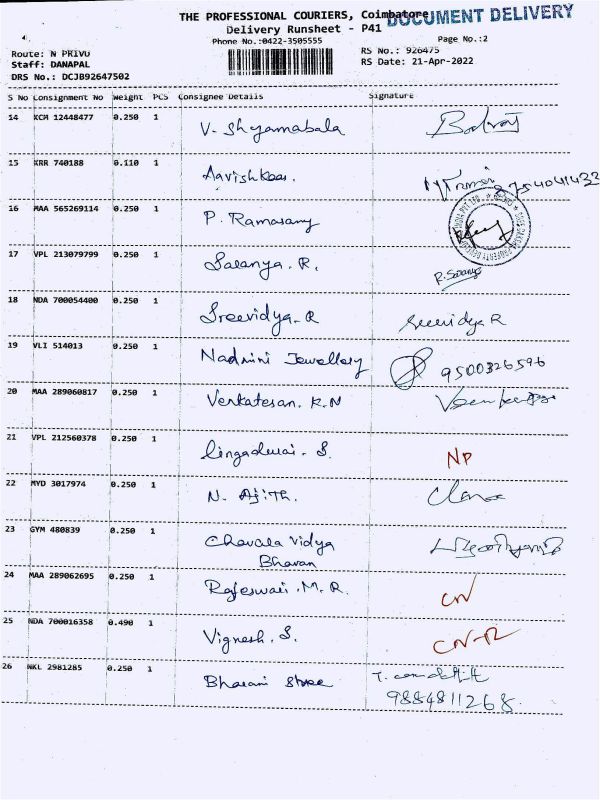 THE PROFESSIONAL COURIERS, Coimbatore
DOCUMENT DELIVERY
Delivery Runsheet - P41
Phone No.:0422-3505555
Page No.:2
Route: N PRIVU
RS No.: 926475
Staff: DANAPAL
RS Date: 21-Apr-2022
DRS No.: DCJB92647502
S No Consignment No Weight PCS Consignee Details Signature
14 KCM 12448477 0.250 1 V. Shyamabala
15 KRR 740188 0.110 1 Aavishkaar. 9754041432
16 MAA 565269114 0.250 1 P. Ramasamy
17 VPL 213079799 0.250 1 Saranya. R. R. Saranya
18 NDA 700054400 0.250 1 Sreevidya. R Sreevidya R
19 VLI 514013 0.250 1 Nadnini Jewellery 9500326596
20 MAA 289060817 0.250 1 Venkatesan. K.N
21 VPL 212560378 0.250 1 Lingadurai. S. NP
22 MYD 3017974 0.250 1 N. Ajith.
23 GYM 480839 0.250 1 Chavara Vidya
Bhavan
24 MAA 289062695 0.250 1 Rajeswari. M. R. CN
25 NDA 700016358 0.490 1 Vignesh. S. CN-R
26 NKL 2981285 0.250 1 Bharani Store
9884811268.